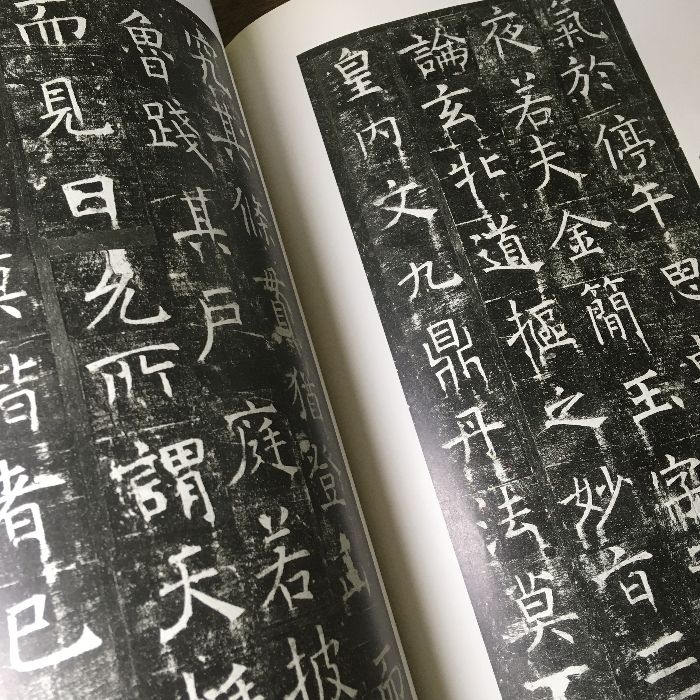 氣於停午思
夜若夫金簡玉字
論玄牝道樞之妙旨
皇內文九鼎丹法莫
究其條貫猶登山而
魯踐其戶庭若披
而見日允所謂天
者已